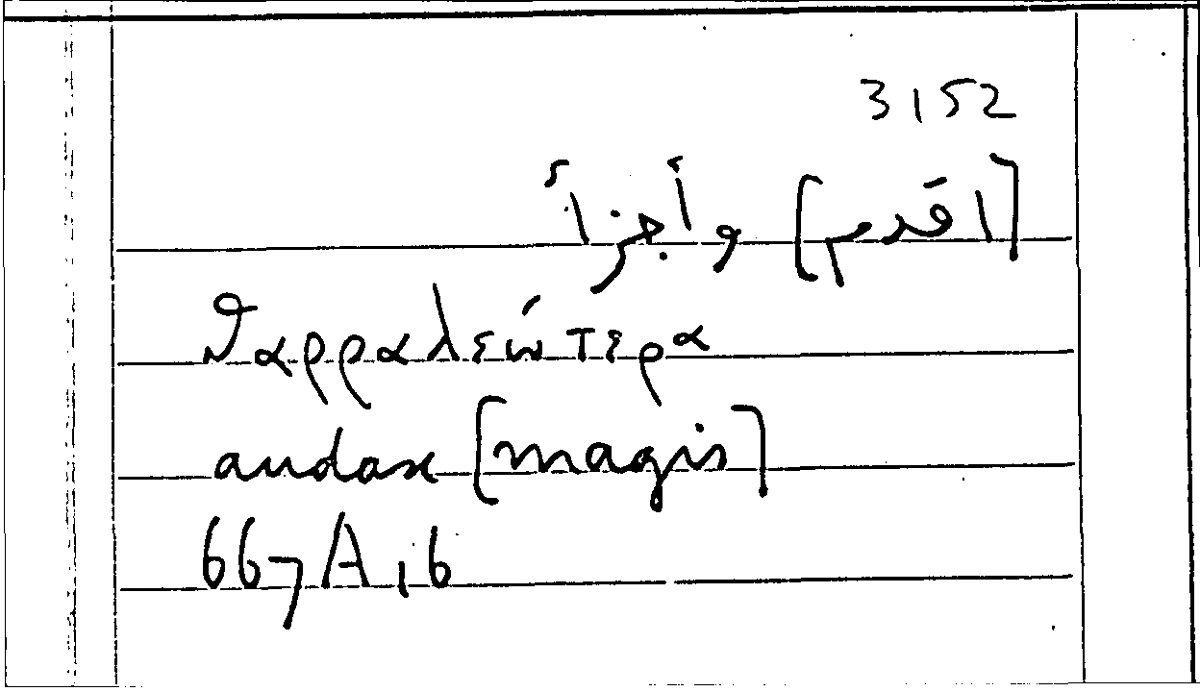 3152
[اقدم] وأجزأ
θαρραλεώτερα
audax [magis]
667A16